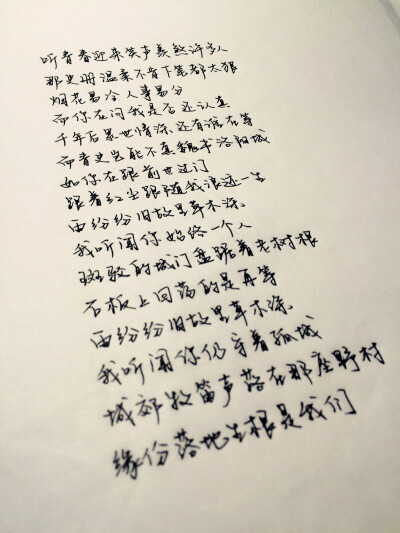 听青春迎来笑声羡煞许多人
那史册温柔不肯下笔都太狠
烟花易冷人事易分
而你在问我是否还认真
千年后累世情深还有谁在等
而青史岂能不真魏书洛阳城
如你在跟前世过门
跟着红尘跟随我浪迹一生
雨纷纷旧故里草木深
我听闻你始终一个人
斑驳的城门盘踞着老树根
石板上回荡的是再等
雨纷纷旧故里草木深
我听闻你仍守着孤城
城郊牧笛声落在那座野村
缘份落地生根是我们